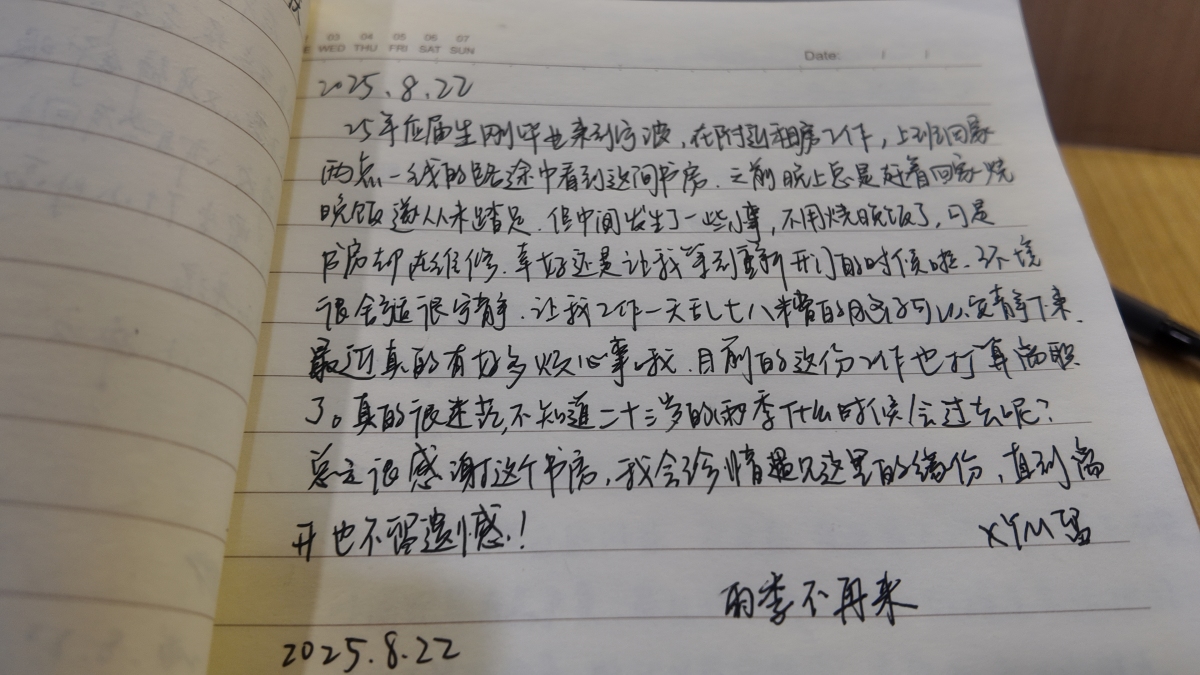 03 04 05 06 07
WED THU FRI SAT SUN
Date: / /
2025.8.22
25年应届生刚毕业来到宁波,在附近租房工作,上班回家
两点一线的路途中看到这间书房.之前晚上总是赶着回家烧
晚饭遂从未踏足.但中间发生了一些小事,不用烧晚饭了,可是
书房却在维修.幸好还是让我等到重新开门的时候啦.环境
很舒适很宁静.让我工作一天乱七八糟的脑子可以安静下来.
最近真的有好多烦心事哦.目前的这份工作也打算离职
了。真的很迷茫,不知道二十三岁的雨季什么时候会过去呢?
总之很感谢这个书房,我会珍惜遇见这里的缘份,直到离
开也不留遗憾!
XYM留
雨季不再来
2025.8.22